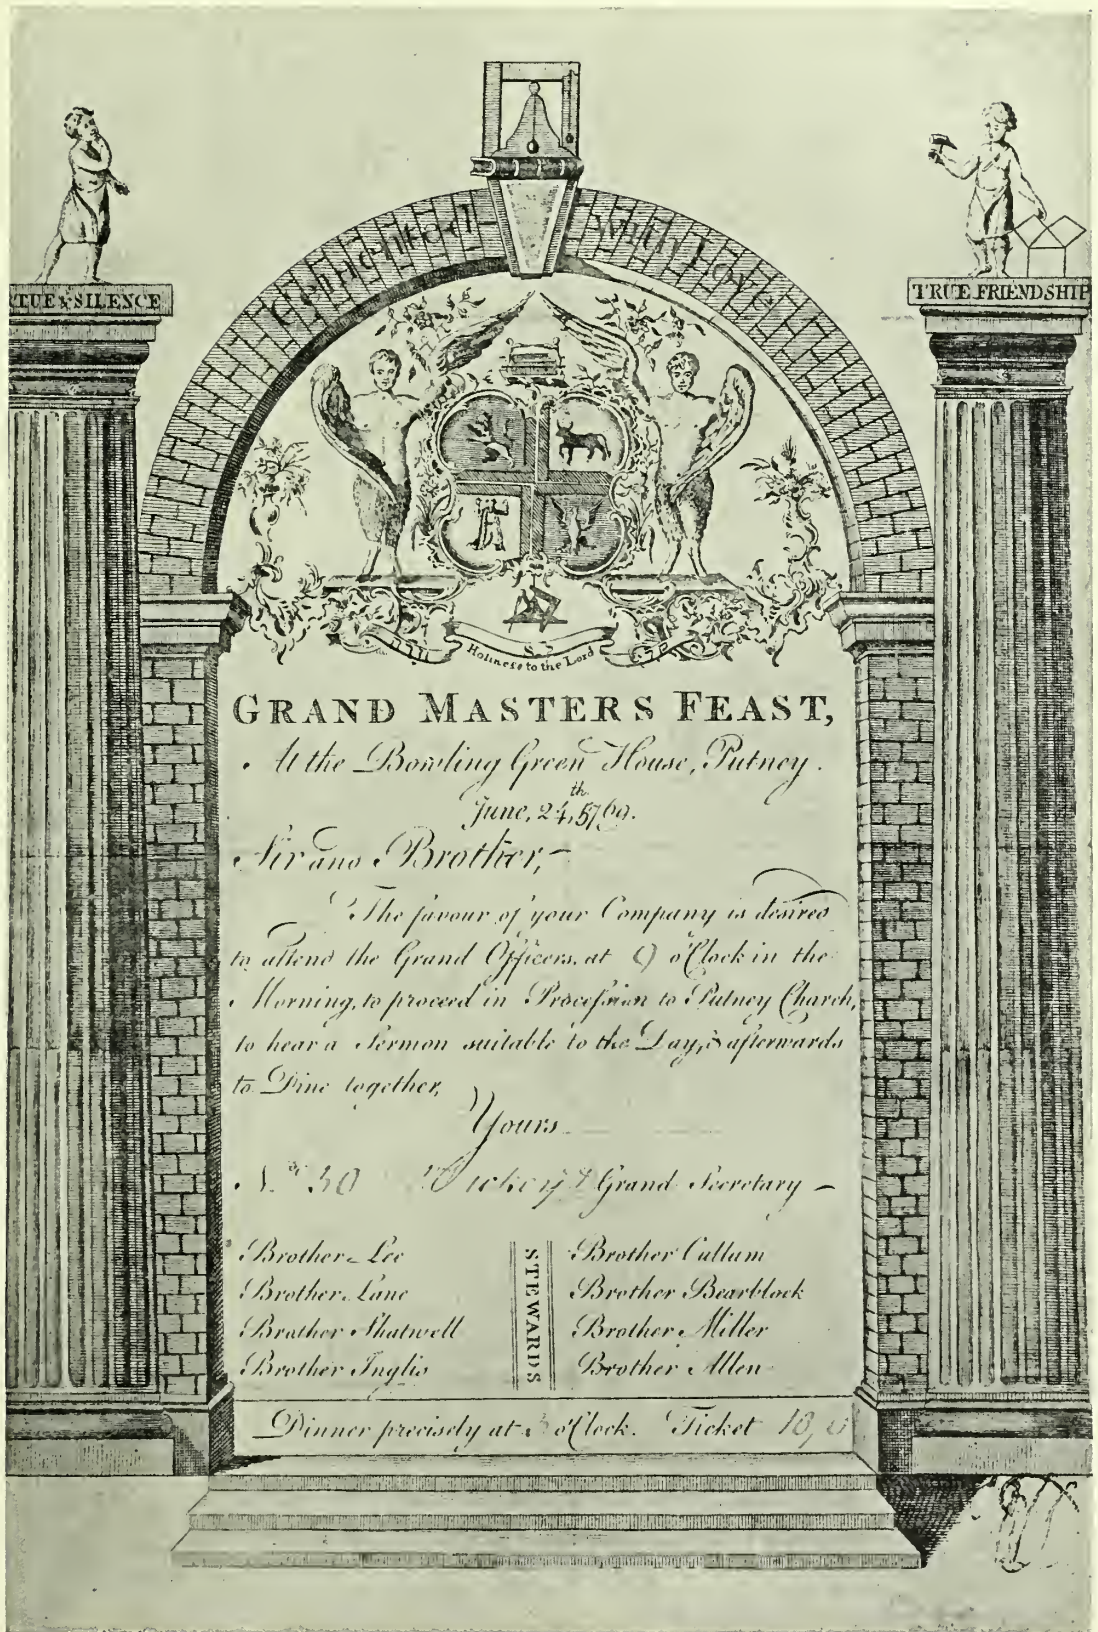 Cemented With Love
TUE & SILENCE
TRUE FRIENDSHIP
Holiness to the Lord
GRAND MASTERS FEAST,
At the Bowling Green House, Putney.
June, 24,th 5769.
Sir and Brother,
The favour of your Company is desired
to attend the Grand Officers, at 9 o'Clock in the
Morning, to proceed in Procession to Putney Church,
to hear a Sermon suitable to the Day, & afterwards
to Dine together,
Yours
No. 30 Grand Secretary
Brother Lee
Brother Lane
Brother Shatwell
Brother Inglis
STEWARDS
Brother Cullum
Brother Bearblock
Brother Miller
Brother Allen
Dinner precisely at 3 o'Clock. Ticket